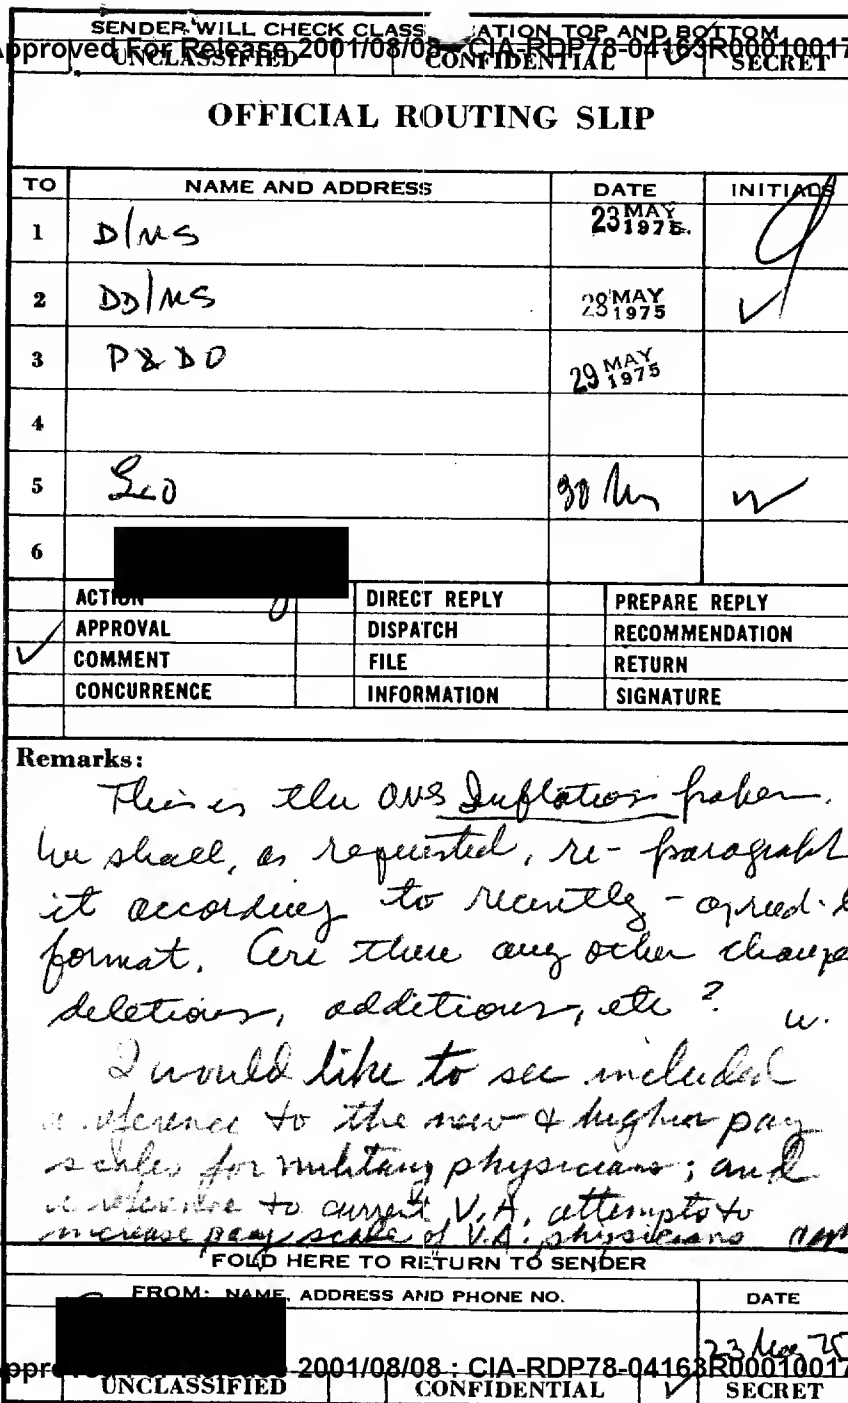 SENDER WILL CHECK CLASS ATION TOP AND BOTTOM
pproved For Release 2001/08/08 : CIA-RDP78-04163R00010017
UNCLASSIFIED CONFIDENTIAL ✓ SECRET
OFFICIAL ROUTING SLIP
TO NAME AND ADDRESS DATE INITIALS
1 D/MS 23 MAY 1975
2 DD/MS 28 MAY 1975 ✓
3 P&DO 29 MAY 1975
4
5 30
6
ACTION DIRECT REPLY PREPARE REPLY
APPROVAL DISPATCH RECOMMENDATION
✓ COMMENT FILE RETURN
CONCURRENCE INFORMATION SIGNATURE
Remarks:
This is the OMS Inflation paper.
We shall, as requested, re-paragraph
it according to recently-agreed-
format. Are there any other change
deletions, additions, etc?
I would like to see included
a reference to the new & higher pay
scales for military physicians; and
a reference to current V.A. attempts to
increase pay scale of V.A. physicians
FOLD HERE TO RETURN TO SENDER
FROM: NAME, ADDRESS AND PHONE NO. DATE
23 May 75
ppr 2001/08/08 : CIA-RDP78-04163R00010017
UNCLASSIFIED CONFIDENTIAL ✓ SECRET